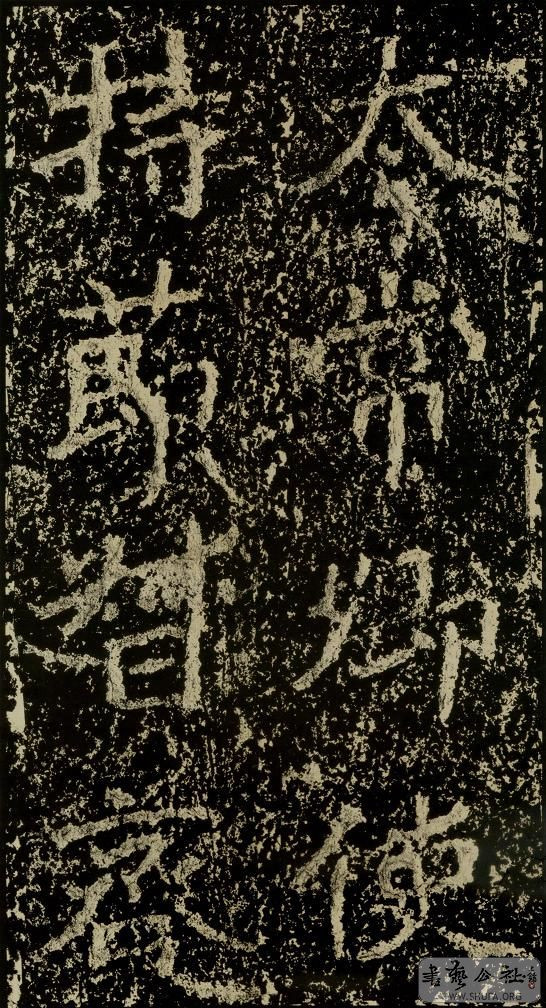 太常卿使
持莭督兗
書藝公社
WWW.SHUFA.ORG